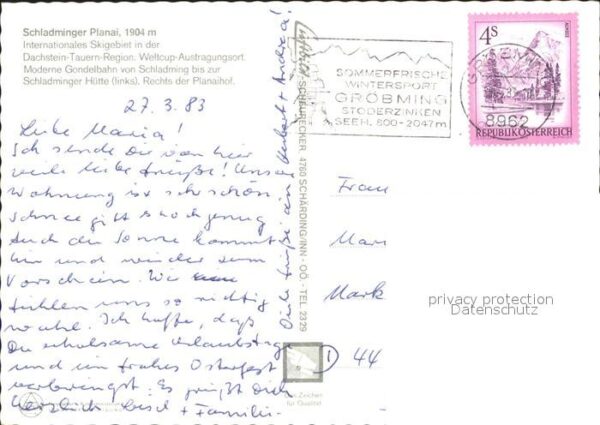 Schladminger Planai, 1904 m
Internationales Skigebiet in der
Dachstein-Tauern-Region. Weltcup-Austragungsort.
Moderne Gondelbahn von Schladming bis zur
Schladminger Hütte (links). Rechts der Planaihof.
27.3.83
Liebe Maria!
Ich sende Dir von hier
viele liebe Grüße! Unsere
Wohnung ist sehr schön,
Schnee gibt es noch genug
Auch die Sonne kommt
hin und wieder zum
Vorschein. Wir
fühlen uns so richtig
wohl. Ich hoffe, daß
Du erholsame Urlaubstage
und ein frohes Osterfest
verbringst. Es grüßt Dich
herzlich Lisl + Familie
Viele Grüße an Herbert + Andrea!
SCHEURECKER 4780 SCHÄRDING/INN - OÖ. - TEL 2329
SOMMERFRISCHE
WINTERSPORT
GRÖBMING
STODERZINKEN
SEEH. 800-2047m
4S
8962
REPUBLIK ÖSTERREICH
Frau
Mar
Mark
privacy protection
Datenschutz
D 44
Das Zeichen
für Qualität